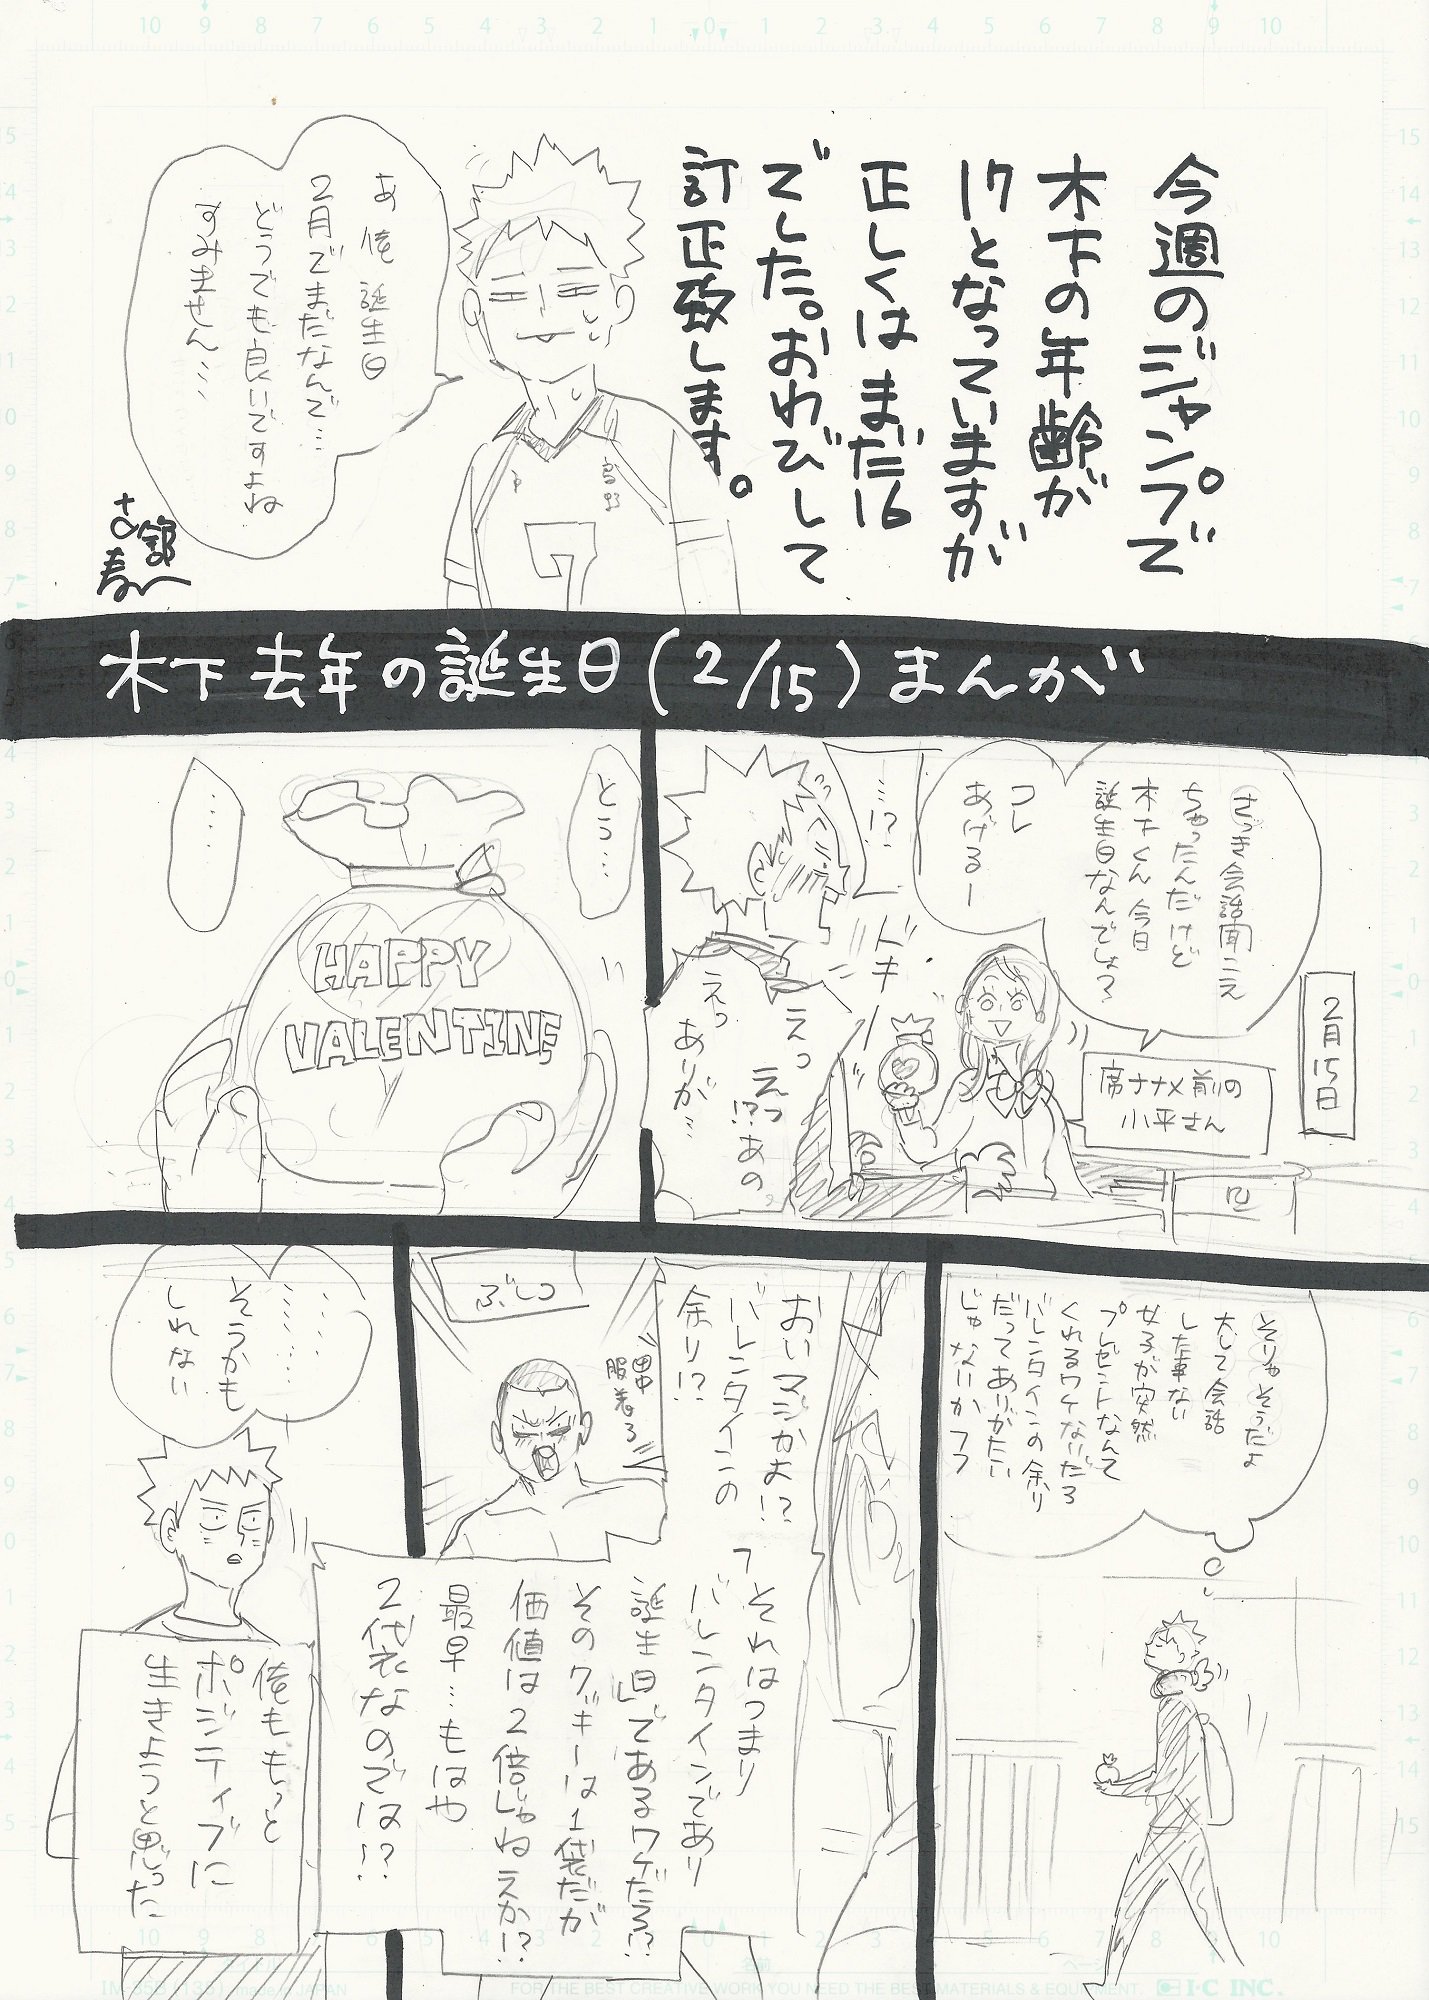 今週のジャンプで
木下の年齢が
17となっていますが
正しくはまだ16
でした。おわびして
訂正致します。
あ 俺 誕生日
2月でまだなんで…
どうでも良いですよね
すみません…
古舘
春一
烏野
7
木下去年の誕生日(2/15)まんが
2月15日
さっき会話聞こえ
ちゃったんだけど
木下くん今日
誕生日なんでしょ?
コレ
あげるー
席ナナメ前の
小平さん
…!?
ドキーッ
えっ
えっ
!?あの
えっ
ありが…
とう…
HAPPY
VALENTINE
……
そりゃそうだよ
大して会話
した事ない
女子が突然
プレゼントなんて
くれるワケないだろ
バレンタインの余り
だってありがたい
じゃないかフフ
おいマジかよ!?
バレンタインの
余り!?
ぶしつ
田中
服着ろ
それはつまり
バレンタインであり
誕生日であるワケだろ!?
そのクッキーは1袋だが
価値は2倍じゃねえか!?
最早…もはや
2袋なのでは!?
……
そうかも
しれない
俺ももっと
ポジティブに
生きようと思った
IM-35B (135) made in JAPAN
FOR THE BEST CREATIVE WORK YOU NEED THE BEST MATERIALS & EQUIPMENT.
I·C INC.